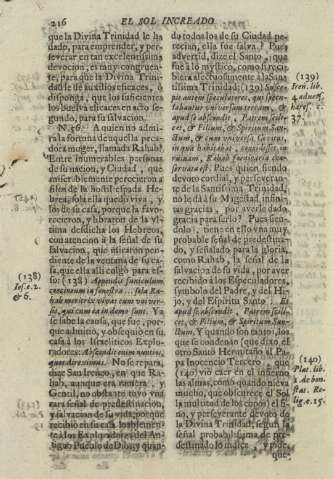 216 EL SOL INCREADO
que la Divina Trinidad le ha
dado, para emprender, y per-
severar en tan excelentissima
devocion; es muy congruen-
te, para que la Divina Trini-
dad le dé auxilios eficaces, ò
disponga, que los suficientes
los buelva eficaces en acto se-
gundo, para su salvacion.
N.56. A quien no admi-
ra la fortuna de aquella peca-
dora muger, llamada Rahab?
Entre inumerables personas
de su nacion, y Ciudad, que
miserablemente perecieron à
filos de la hostil espada He-
brea, sola ella quedò viva, y
los de su casa, porque la favo-
recieron, y libraron de la vl-
tima desdicha los Hebreos,
con atencion à la señal de su
salvacion, que miraron pen-
diente de la ventana de su ca-
sa, que ella alli colgò para es-
so: (138) Appendit funiculum
coccineum in fenestra sola Ra-
hab meretrix vivat cum vni ver-
sis, qui cum ea in domo sunt. Ya
se sabe la causa, que fue, por-
que admitiò, y obsequiò en su
casa à los Israeliticos Explo-
radores: Abscondit enim nuntios,
quos direximus. No se repara,
que San Irenèo, en que Ra-
hab, aunque era ramera, y
Gentil, no obstante tuvo vna
rara señal de predestinacion,
y salvacion de su vida, porque
recibiò en su casa
te à los Exploradores del An-
tiguo Pueblo de Dios, quan-
do todos los de su Ciudad pe-
recian, ella fue salva? Pues
advertid, dize el Santo, que
fue à lo mystico, como si reci-
biera afectuosamente à la San-
tissima Trinidad: (139) Susce-
pit autem speculatores, qui specu-
labantur vniversam terram, &
apud se abscondit, Patrem scili-
cet, & Filium, & Spiritum San-
ctum, & cum vniversa Civitas,
in qua habitabat,
ruinam, Rahab fornicaria con-
servata est. Pues quien siendo
devoto cordial, y perseveran-
te de la Santissima Trinidad,
no le dà à su Magestad, infini-
tas gracias, por averle dado
gracia para serlo? Pues sien-
dolo, tiene en esto vna muy
probable señal de predestina-
do, y señalado para la gloria,
como Rahab, la señal de la
salvacion de su vida, por aver
recibido à los Especuladores,
symbolo del Padre, y del Hi-
jo, y del Espiritu Santo. Et
apud se abscondit, Patrem scili-
cet, & Filium, & Spiritum San-
ctum. Y quando son tantos, los
que se condenan (que dixo el
otro Santo Hermitaño al Pa-
pa Inocencio Tercero, que
(140) viò caer en el infierno
las almas, como quando nieva
mucho, que obscurece el Sol
la multitud de los copos) el
no, y perseverante devoto de
la Divina Trinidad, segun la
señal probabilissima de pre-
destinado lo indica, y pide
que
(138)
Ios. c. 2.
& 6.
(139)
Iren. lib.
4. adversus
hæres. c.
37.
(140)
Plat. lib.
1. de bon.
stat. Re-
lig. c. 15.